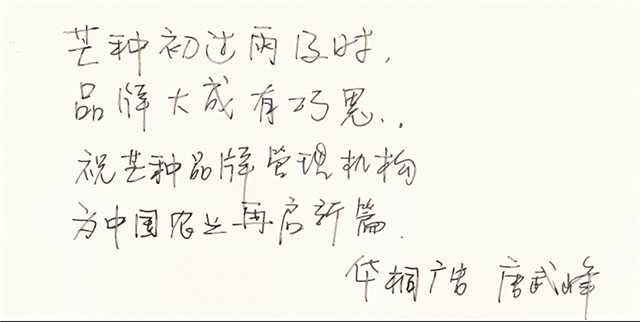 芒种初过雨及时，
品牌大成有巧思．．
祝芒种品牌管理机构
为中国农业再启新篇．
华桐广告 唐武峰